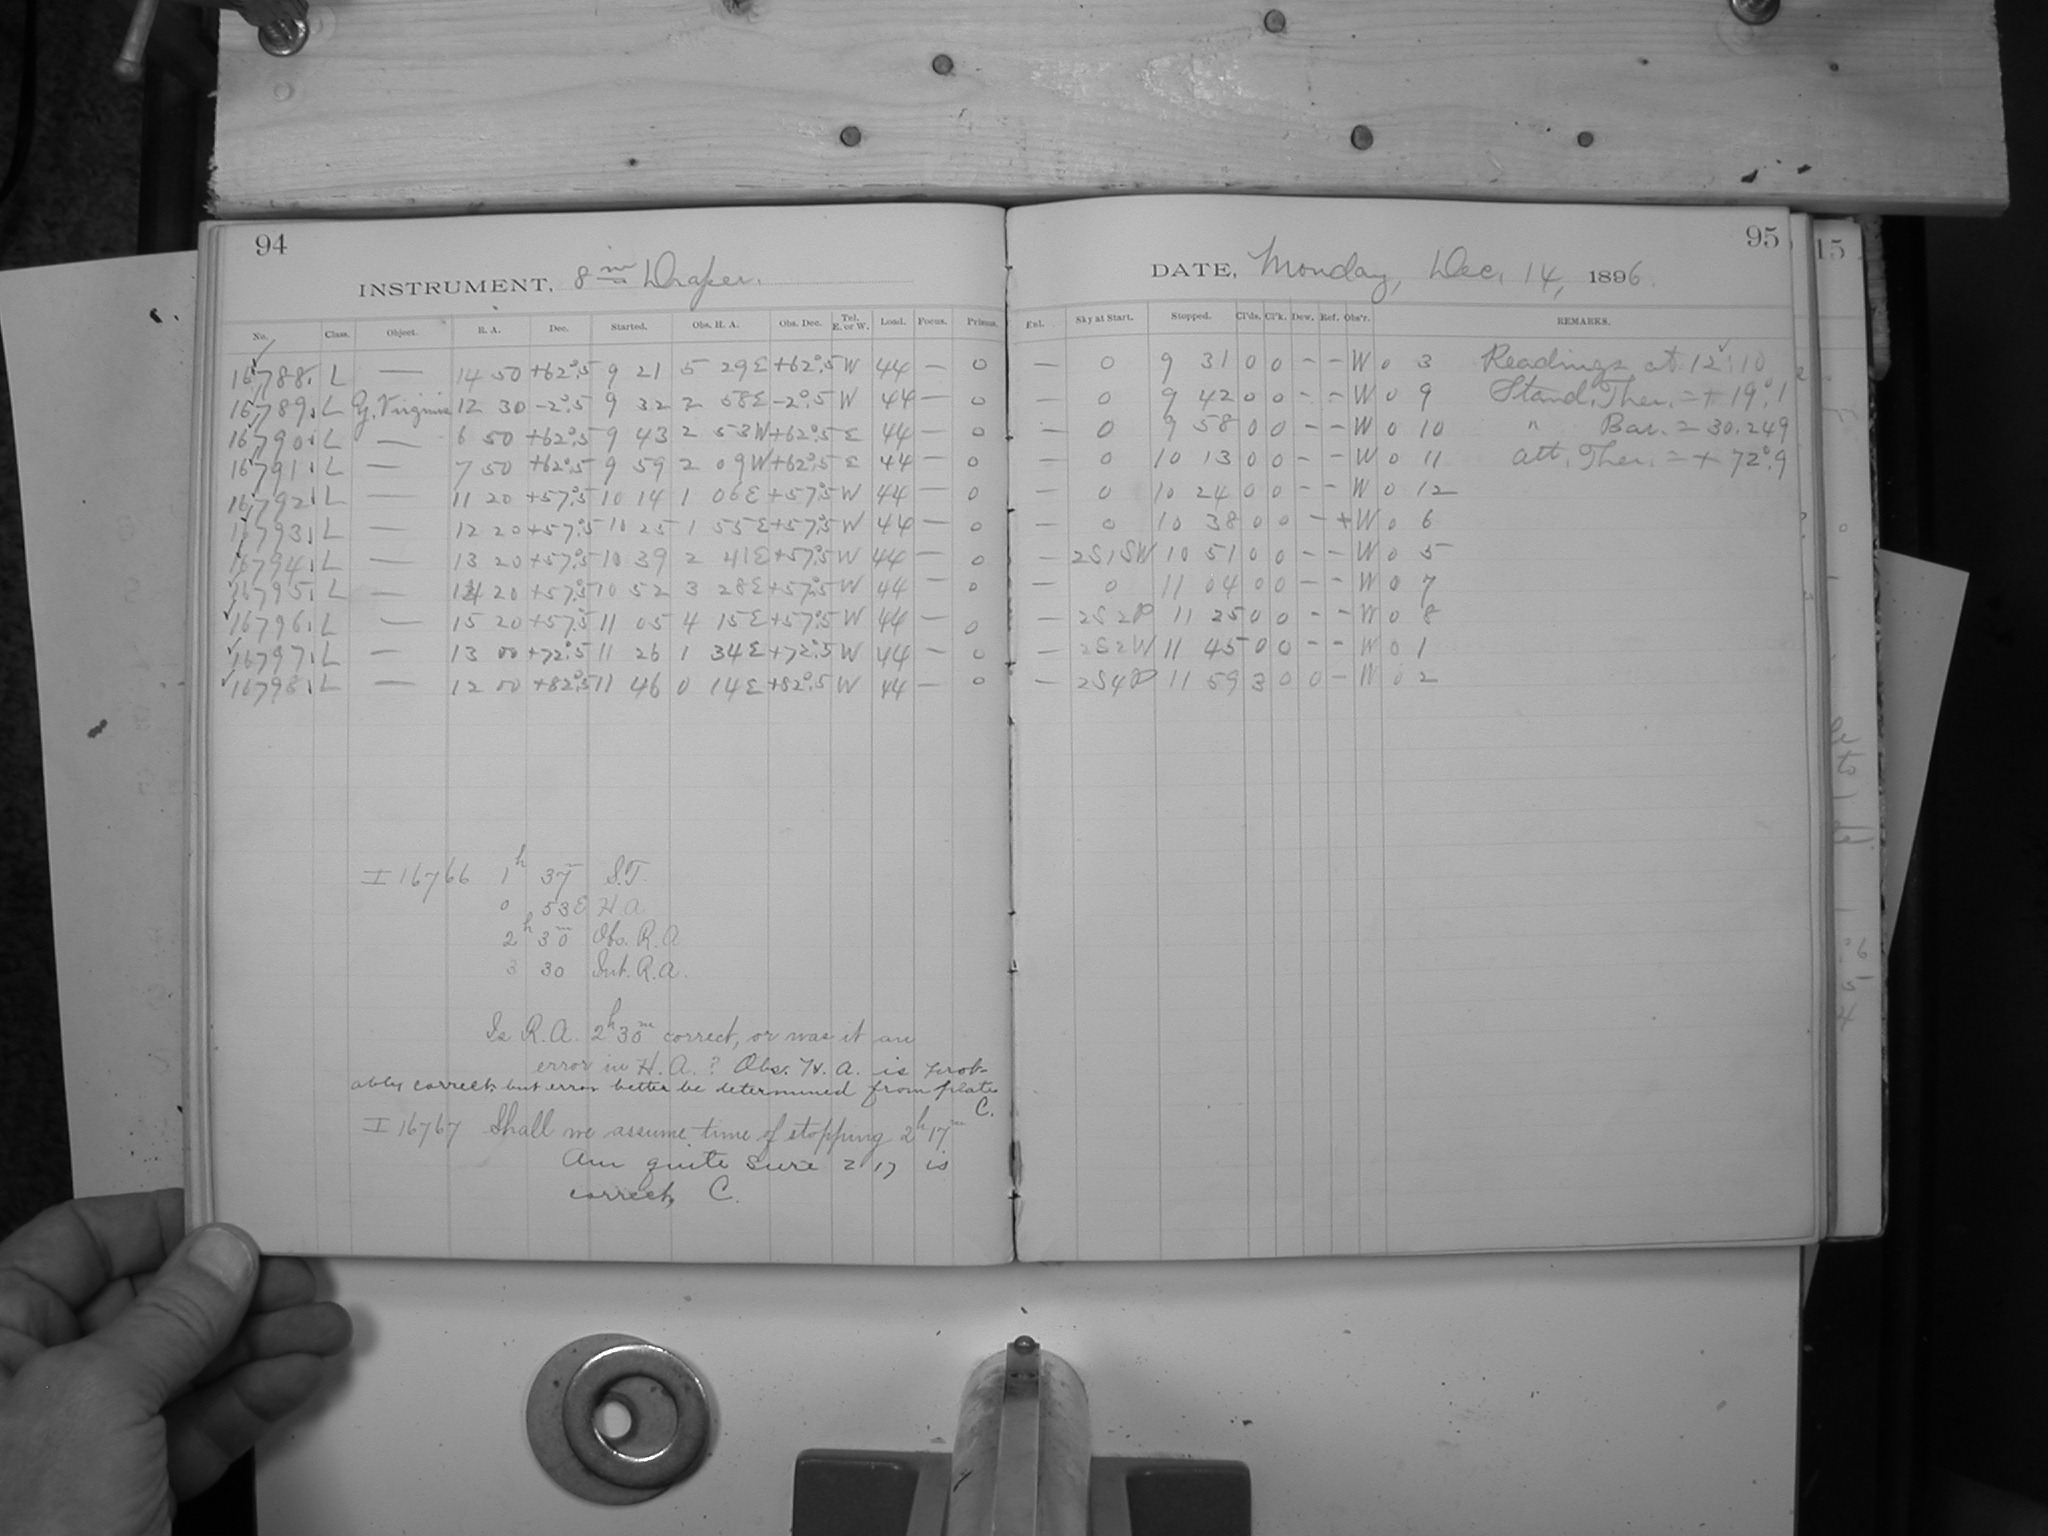 94
INSTRUMENT, 8 in Draper.
No. Class. Object. R. A. Dec. Started. Obs. H. A. Obs. Dec. Tel. E. or W. Load. Focus. Prisms.
16788. L — 14 50 +62°.5 9 21 5 29E +62°.5 W 44 — 0
16789. L Virginis 12 30 -2°.5 9 32 2 58E -2°.5 W 44 — 0
16790. L — 6 50 +62°.5 9 43 2 53W +62°.5 E 44 — 0
16791. L — 7 50 +62°.5 9 59 2 09W +62°.5 E 44 — 0
16792. L — 11 20 +57°.5 10 14 1 06E +57°.5 W 44 — 0
16793. L — 12 20 +57°.5 10 25 1 55E +57°.5 W 44 — 0
16794. L — 13 20 +57°.5 10 39 2 41E +57°.5 W 44 — 0
16795. L — 14 20 +57°.5 10 52 3 28E +57°.5 W 44 — 0
16796. L — 15 20 +57°.5 11 05 4 15E +57°.5 W 44 — 0
16797. L — 13 00 +72°.5 11 26 1 34E +72°.5 W 44 — 0
16798. L — 12 00 +82°.5 11 46 0 14E +82°.5 W 44 — 0
I 16766 1h 37m S.T.
0 53E H.A.
2h 30m Obs. R.A.
3 30 Int. R.A.
Is R.A. 2h 30m correct, or was it an
error in H.A.? Obs. H.A. is prob-
ably correct, but error better be determined from plate
C.
I 16767 Shall we assume time of stopping 2h 17m
Am quite sure 2 17 is
correct, C.
95
DATE, Monday, Dec. 14, 1896.
Enl. Sky at Start. Stopped. Cl'ds. Cl'k. Dew. Ref. Obs'r. REMARKS.
— 0 9 31 0 0 - - W 0 3 Readings at 12h 10
— 0 9 42 0 0 - - W 0 9 Stand. Ther. = + 19°.1
— 0 9 58 0 0 - - W 0 10 " Bar. = 30.249
— 0 10 13 0 0 - - W 0 11 Att. Ther. = + 72°.9
— 0 10 24 0 0 - - W 0 12
— 0 10 38 0 0 - + W 0 6
— 2S1SW 10 51 0 0 - - W 0 5
— 0 11 04 0 0 - - W 0 7
— 2S2P 11 25 0 0 - - W 0 8
— 2S2W 11 45 0 0 - - W 0 1
— 2S4P 11 59 3 0 0 - W 0 2
15